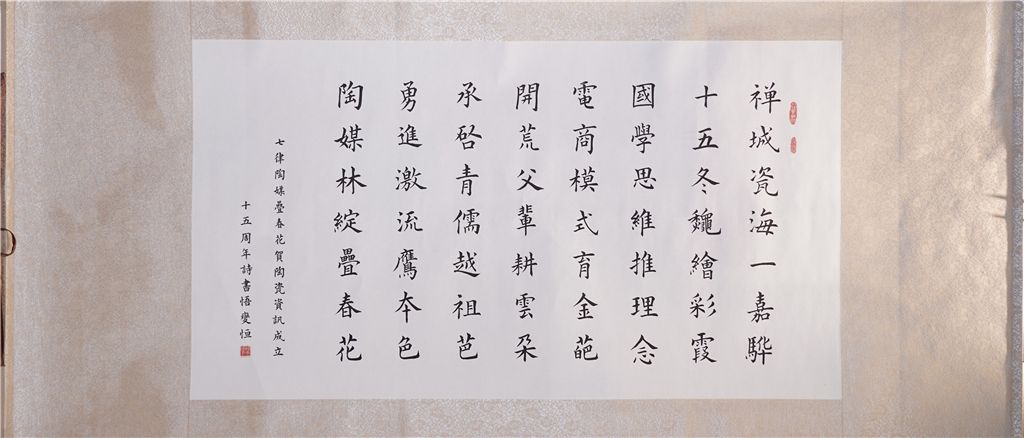 禅城瓷海一嘉驊
十五冬春繪彩霞
國學思維推理念
電商模式育金葩
開荒父輩耕雲朵
承啓青儒越祖芭
勇進激流鷹本色
陶媒林綻疊春花
七律陶媒疊春花賀陶瓷資訊成立
十五周年詩書悟變恒